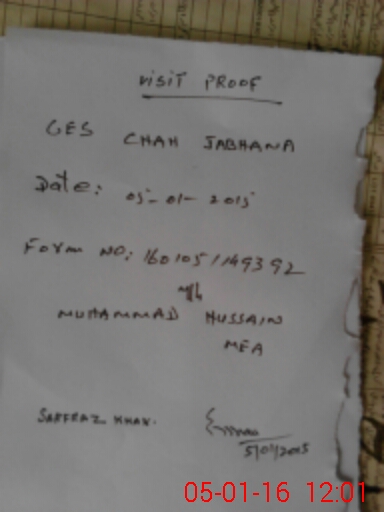 VISIT PROOF
GES CHAH JABHANA
Date: 05-01-2015
Form NO: 160105/149392
MUHAMMAD HUSSAIN
MEA
SARFRAZ KHAN.
5/01/2005
05-01-16 12:01